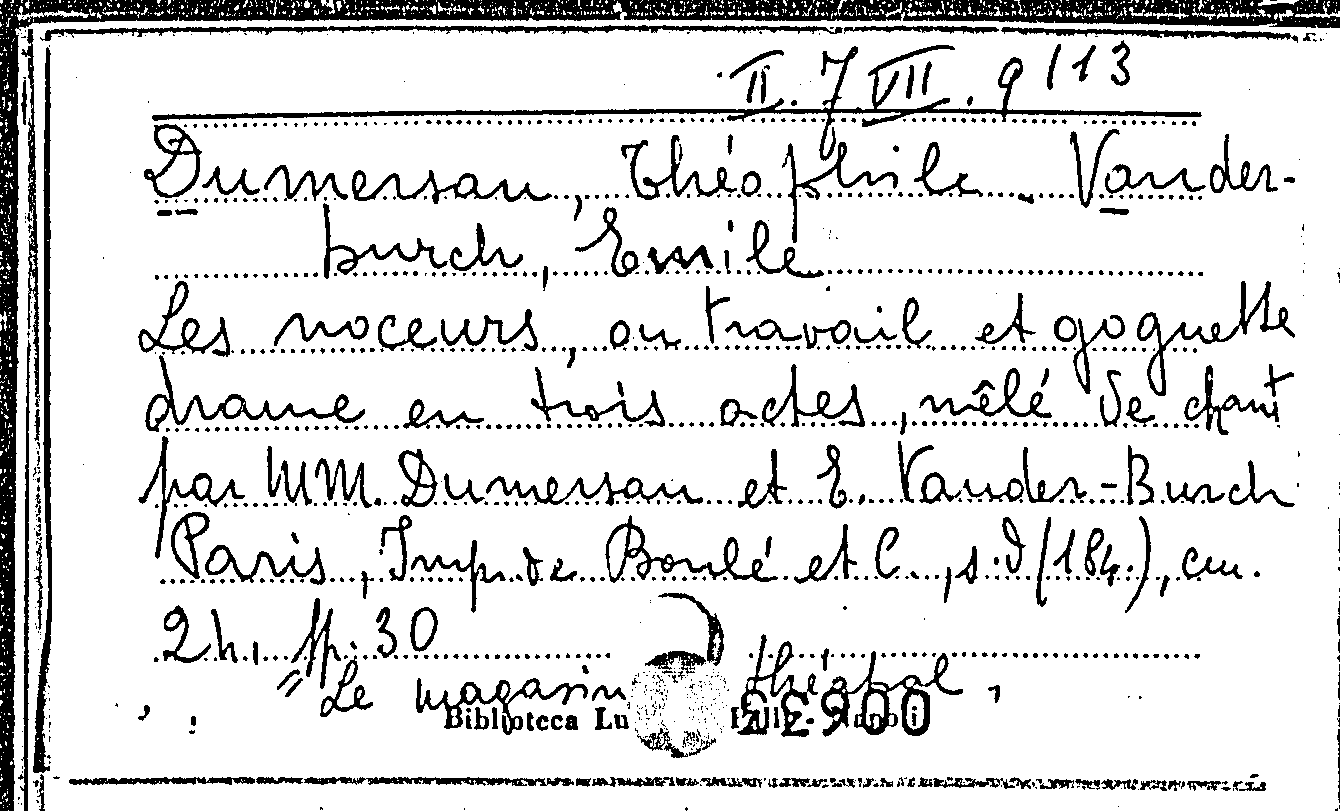 II. 7 VII. 9/13
Dumersan, Théophile - Vander-
burch, Emile
Les noceurs, ou travail et goguette
drame en trois actes, mêlé de chant
par MM. Dumersan et E. Vander-Burch
Paris, Imp. de Boulé et C., s.d (184.), cm.
24, pp. 30
"Le magasin théatral,
Biblioteca Lu